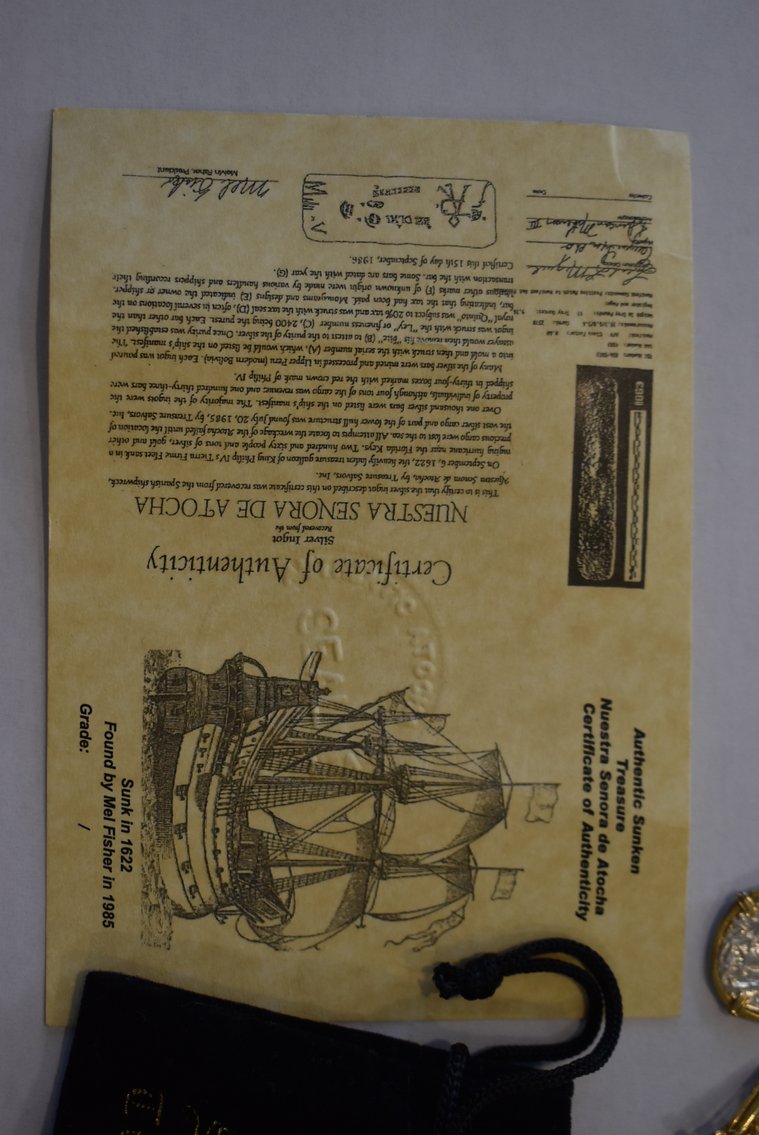 Authentic Sunken
Treasure
Nuestra Senora de Atocha
Certificate of Authenticity
Sunk in 1622
Found by Mel Fisher in 1985
Grade: /
SEAL
ATOCHA
Certificate of Authenticity
Silver Ingot
Recovered from the
NUESTRA SENORA DE ATOCHA
This is to certify that the silver ingot described on this certificate was recovered from the Spanish shipwreck,
Nuestra Senora de Atocha, by Treasure Salvors, Inc.
On September 6, 1622, the heavily laden treasure galleon of King Philip IV's Tierra Firme Fleet sank in a
raging hurricane near the Florida Keys. Two hundred and sixty people and tons of silver, gold and other
precious cargo were lost to the sea. All attempts to locate the wreckage of the Atocha failed until the location of
the vast silver cargo and part of the lower hull structure was found July 20, 1985, by Treasure Salvors, Inc.
Over one thousand silver bars were listed on the ship's manifest. The majority of the ingots were the
property of individuals, although four tons of the cargo was revenue; and one hundred thirty-three bars were
shipped in thirty-four boxes marked with the red crown mark of Philip IV.
Many of the silver bars were mined and processed in Upper Peru (modern Bolivia). Each ingot was poured
into a mold and then struck with the serial number (A), which would be listed on the ship's manifest. The
assayer would then remove his "Bite," (B) to attest to the purity of the silver. Once purity was established the
ingot was struck with the "Ley," or fineness number (C), 2400 being the purest. Each bar other than the
royal "Quinto" was subject to 20% tax and was struck with the tax seal (D), often in several locations on the
bar, indicating that the tax had been paid. Monograms and designs (E) indicated the owner or shipper.
Various other marks (F) of unknown origin were made by various handlers and shippers recording their
transaction with the bar. Some bars are dated with the year (G).
Certified this 15th day of September, 1986.
Mel Fisher
Melvin Fisher, President